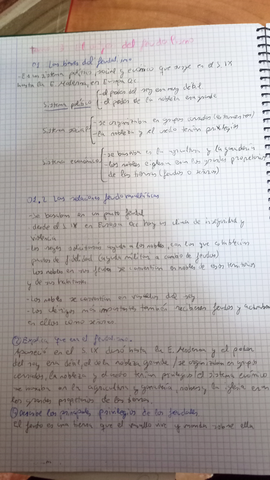 El origen del feudalismo
1. Las bases del feudalismo
-Es un sistema político, social y económico que surge en el S IX
durante la E. Media, en Europa Occ
el poder del rey era muy débil
Sistema político el poder de la nobleza era grande
Sistema social se organizaba en grupos cerrados (estamentos)
la nobleza y el clero tenían privilegios
Sistema económico se basaba en la agricultura y la ganadería
los nobles e iglesia eran los grandes propietarios
de las tierras (feudos o
Las relaciones feudovasalláticas
-Se basaban en un pacto feudal
desde el S IX en Europa Occ hay un clima de inseguridad y
violencia
Los reyes solicitaron ayuda a los nobles, con los que establecían
pactos de fidelidad (ayuda militar a cambio de feudos)
Los nobles en sus feudos se
y de sus habitantes
-Los nobles se convertían en vasallos del rey
- Los clérigos también recibieron feudos y actuaban
en ellos como señores
Explica que es el feudalismo
Apareció en el S IX durante la E. Media y el poder
del rey era débil, el de la nobleza, grande / se organizaba en grupos
cerrados, la nobleza y el clero tenían privilegios el sistema económico
se basaba en la agricultura y ganadería, nobles y la iglesia eran
los grandes propietarios de las tierras.
los principales privilegios de los feudales
El feudo es una tierra que el y manda sobre ella